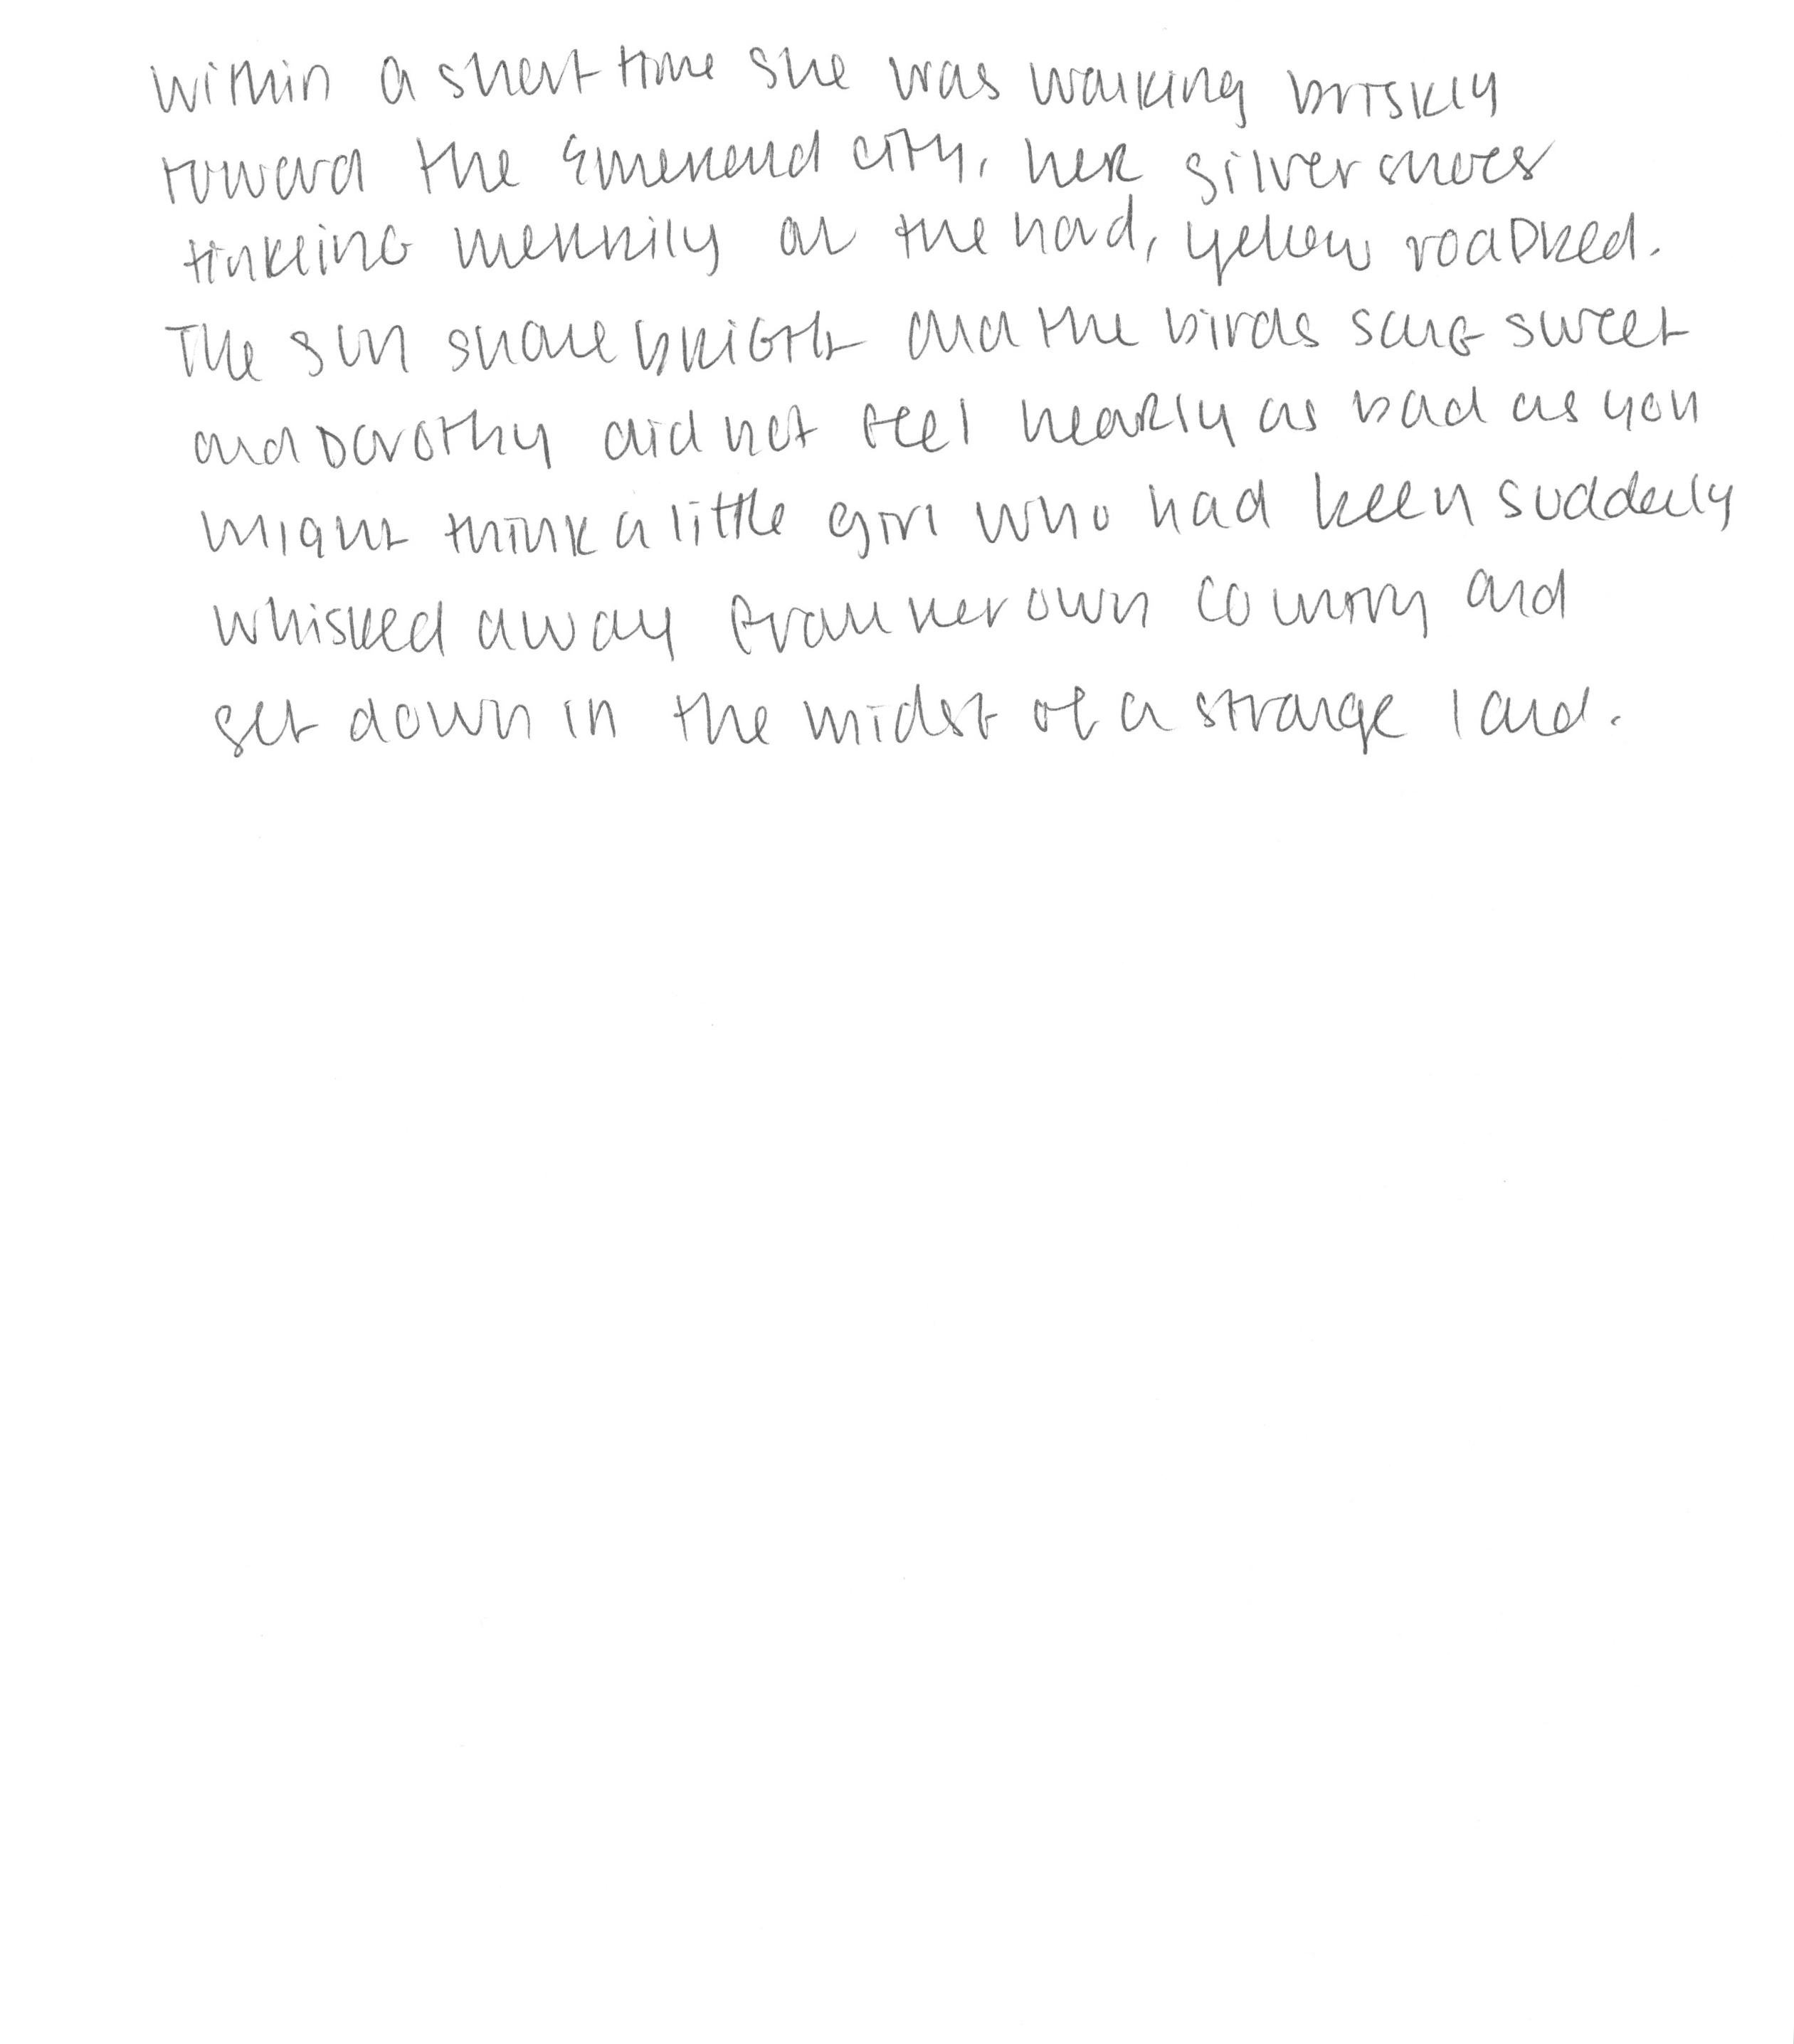 Within a short time she was walking briskly
toward the Emerald City, her silver shoes
tinkling merrily on the hard, yellow roadbed.
The sun shone bright and the birds sang sweet
and Dorothy did not feel nearly as bad as you
might think a little girl who had been suddenly
whisked away from her own country and
set down in the midst of a strange land.